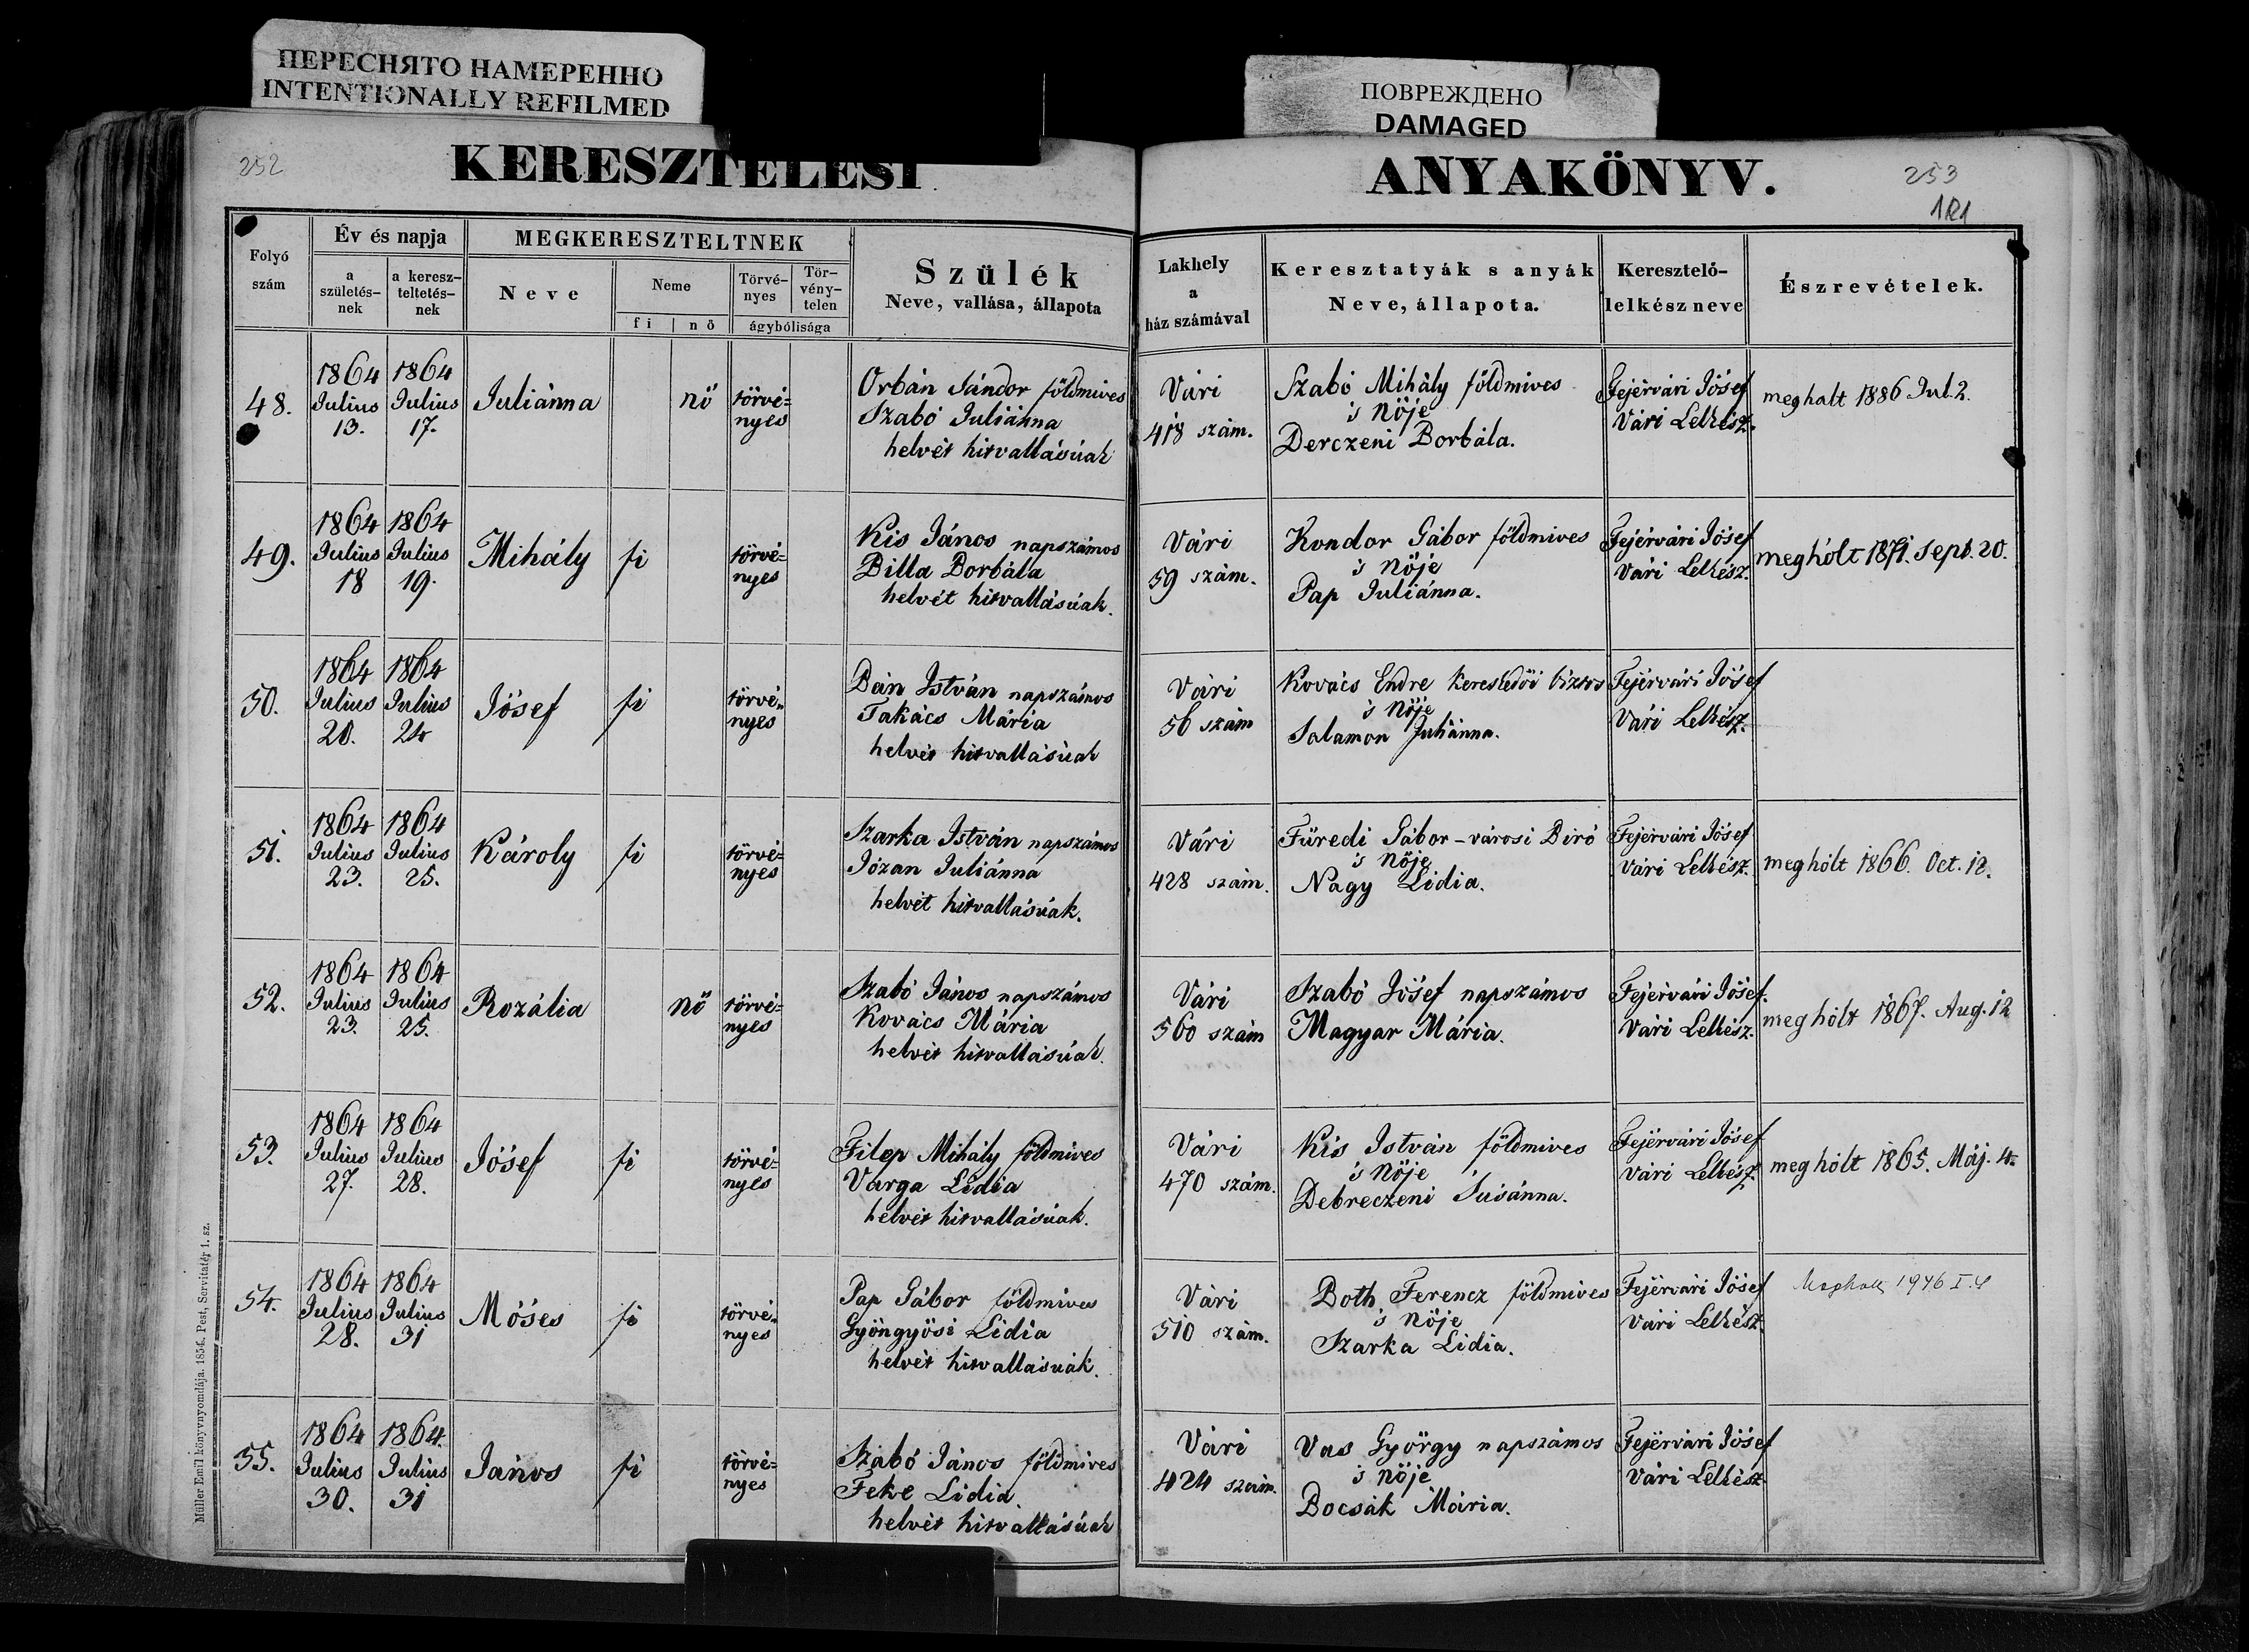 ПЕРЕСНЯТО НАМЕРЕННО
INTENTIONALLY REFILMED
ПОВРЕЖДЕНО
DAMAGED
252
KERESZTELÉSI
ANYAKÖNYV.
253
121
Folyó szám
Év és napja
a születés-nek
a keresz-teltetés-nek
MEGKERESZTELTNEK
Neve
Neme
fi
nő
Törvé-nyes
Tör-vény-telen
ágybólisága
Szülék
Neve, vallása, állapota
Lakhely
a
ház számával
Keresztatyák s anyák
Neve, állapota.
Keresztelő-
lelkész neve
Észrevételek.
48.
1864 Julius 13.
1864 Julius 17.
Juliánna
nő
törvé=
nyes
Orbán Sándor földmives
Szabó Juliánna
helvét hitvallásúak
Vári
418 szám.
Szabó Mihály földmives
's Nője
Derczeni Borbála.
Fejérvári Jósef
Vári Lelkész.
meghalt 1886 Jul. 2.
49.
1864 Julius 18
1864 Julius 19.
Mihály
fi
törvé=
nyes
Kis János napszámos
Billa Borbála
helvét hitvallásúak.
Vári
59 szám.
Kondor Gábor földmives
's Nője
Pap Juliánna.
Fejérvári Jósef
Vári Lelkész.
meghólt 1871. Sept. 20.
50.
1864 Julius 20.
1864 Julius 24
Jósef
fi
törvé=
nyes
Bán István napszámos
Takács Mária
helvét hitvallásúak
Vári
56 szám
Kovács Endre kereskedői biztos
's Nője
Salamon Juliánna.
Fejérvári Jósef
Vári Lelkész.
51.
1864 Julius 23.
1864 Julius 25.
Károly
fi
törvé=
nyes
Szarka István napszámos
Józan Juliánna
helvét hitvallásúak.
Vári
428 szám.
Füredi Gábor - városi Biró
's Nője
Nagy Lidia.
Fejérvári Jósef
Vári Lelkész.
meghólt 1866. Oct. 12.
52.
1864 Julius 23.
1864 Julius 25.
Rozália
nő
törvé=
nyes
Szabó János napszámos
Kovács Mária
helvét hitvallásúak.
Vári
560 szám
Szabó Jósef napszámos
Magyar Mária.
Fejérvári Jósef.
Vári Lelkész.
meghólt 1867. Aug. 12
53.
1864 Julius 27.
1864 Julius 28.
Jósef
fi
törvé=
nyes
Filep Mihály földmives
Varga Lidia
helvét hitvallásúak.
Vári
470 szám.
Kis István földmives
's Nője
Debreczeni Susánna.
Fejérvári Jósef
Vári Lelkész.
meghólt 1865. Máj. 4.
54.
1864 Julius 28.
1864 Julius 31
Móses
fi
törvé=
nyes
Pap Gábor földmives
Gyöngyösi Lidia
helvét hitvallásúak.
Vári
510 szám.
Both Ferencz földmives
's Nője
Szarka Lidia.
Fejérvári Jósef
Vári Lelkész.
Meghalt 1946 I.
55.
1864 Julius 30.
1864. Julius 31
János
fi
törvé=
nyes
Szabó János földmives
Feke Lidia.
helvét hitvallásúak
Vári
424 szám.
Vas György napszámos
's Nője
Bocsák Mária.
Fejérvári Jósef
Vári Lelkész
Müller Emil könyvnyomdája. 1854. Pest, Servitatér 1. sz.